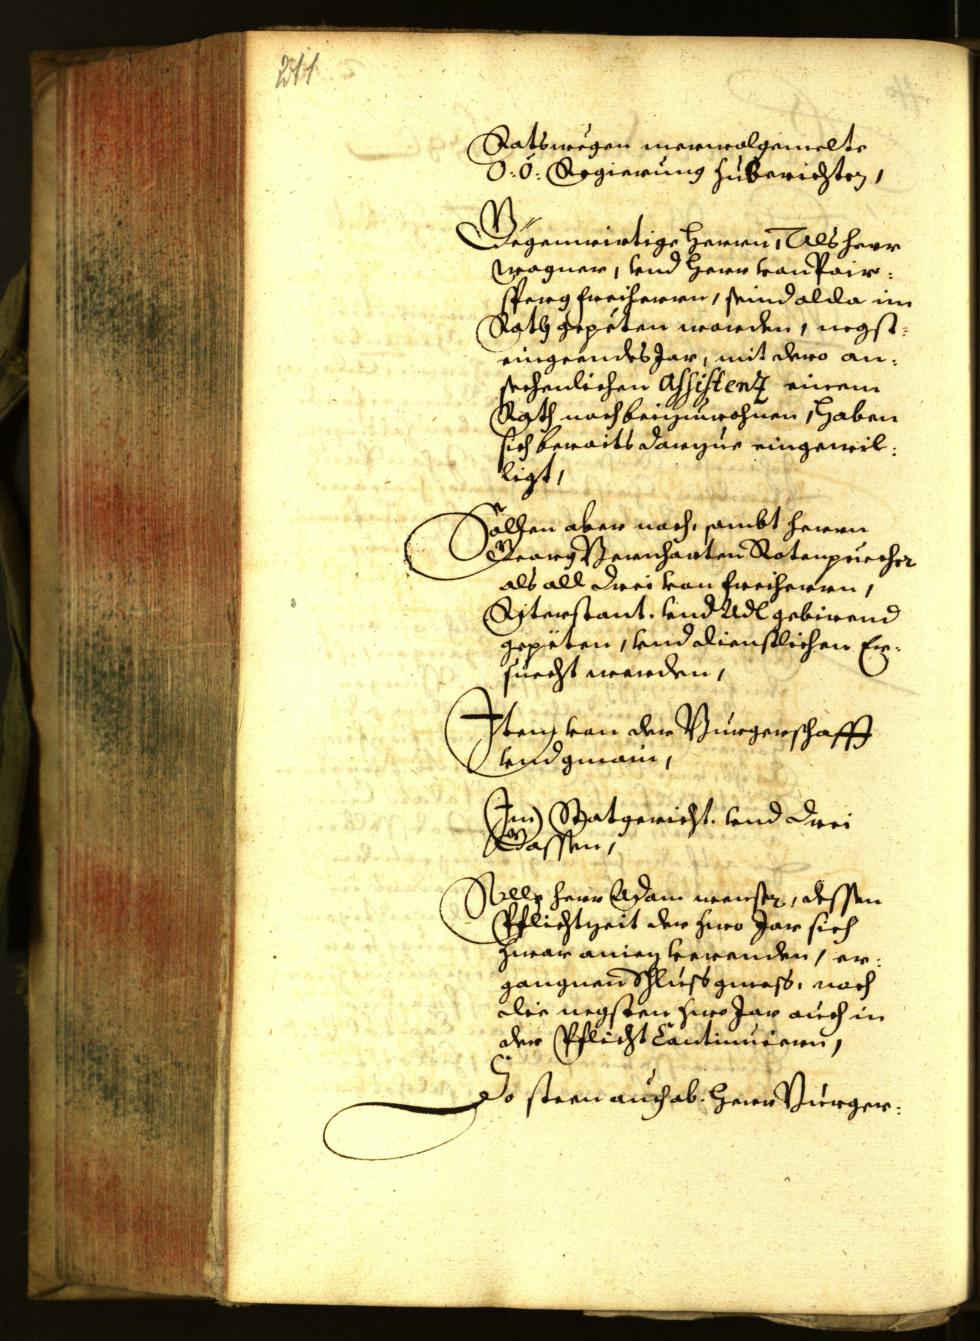 211
Ratswegen merwolgemelte
O: Ö: Regierung zuberichten,
Gegenwirtige Herrn, Als herr
Wagner, vnd Herr von Pair:
sperg freiherrn, seind alda im
Rath gepeten worden, negst:
eingeendes Jar, mit dero an:
sechenlichen Assistenz einem
Rath noch beizuwohnen, Haben
sich beraits darzue eingewil:
ligt,
Sollen aber noch, sambt herrn
Georg Bernharten Rotenpuecher
als all drei von freiherrn,
Riterstant. vnd Adl gebirend
gepeten, vnd dienstlichen Er:
suecht werden,
Item von der Burgerschafft
vnd gmain,
Im Statgericht. vnd drei
Gassen,
Solle herr Adam Wenser, dessen
Pflichtzeit der zwo Jar sich
zwar aniez verenden, er:
gangnen Schluss gmess, noch
die negsten zwo Jar auch in
der Pflicht Continuiern,
So steen auch ab. Herr Burger: